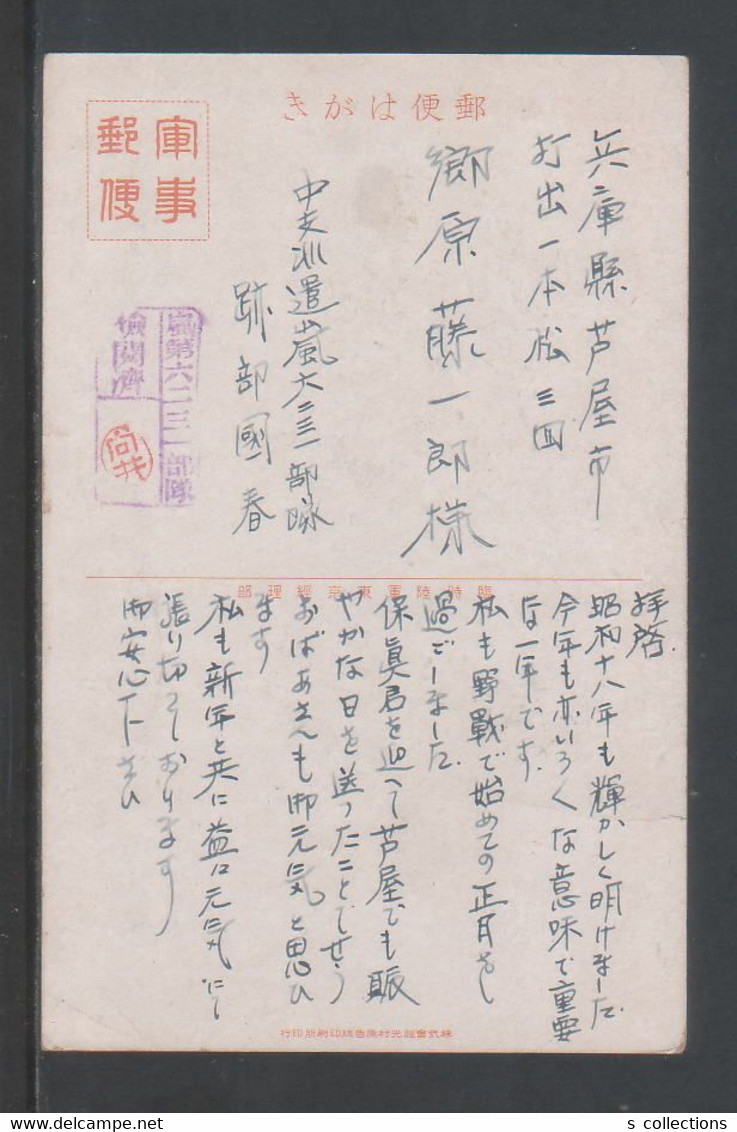 郵便はがき
軍事
郵便
兵庫縣芦屋市
打出一本松三四
郷原藤一郎様
中支派遣嵐六二三一部隊
跡部國春
嵐第六二三一部隊
検閲濟
臨時陸軍東京經理部
拝啓
昭和十八年も輝かしく明けました
今年も亦いろ〱な意味で重要
な一年です.
私も野戦で始めての正月をし
過ごしました.
保眞君を迎へて芦屋でも賑
やかな日を送ったことでせう
おばあさんも御元気と思ひ
ます
私も新年と共に益々元気にて
張り切っております
御安心下さい
株式會社光村原色版印刷所印行
s collections
delcampe.net